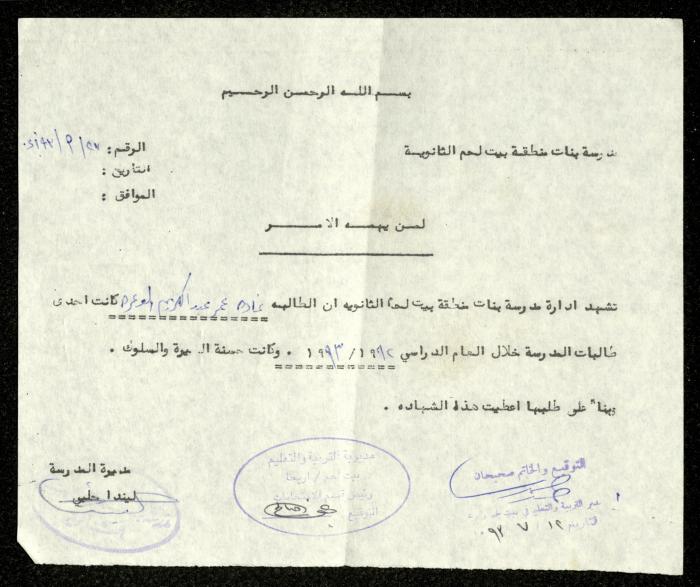 بسم الله الرحمن الرحيم
مدرسة بنات منطقة بيت لحم الثانوية
الرقم :
التأريخ :
الموافق :
لمن يهمه الامر
تشهد ادارة مدرسة بنات منطقة بيت لحم الثانويه ان الطالبه غاده عمر عبد الكريم كانت احدى
طالبات المدرسة خلال العام الدراسي ١٩٩٢/١٩٩٣ . وكانت حسنة السيرة والسلوك .
وبناء على طلبها اعطيت هذه الشهاده .
مديرة المدرسة
ليندا حلبي
مديرية التربية والتعليم
بيت لحم / اريحا
ورئيس قسم الامتحانات
التوقيع
التوقيع والخاتم صحيحان
مدير التربية والتعليم في بيت لحم
التاريخ ١٢ ٧ ٩٣